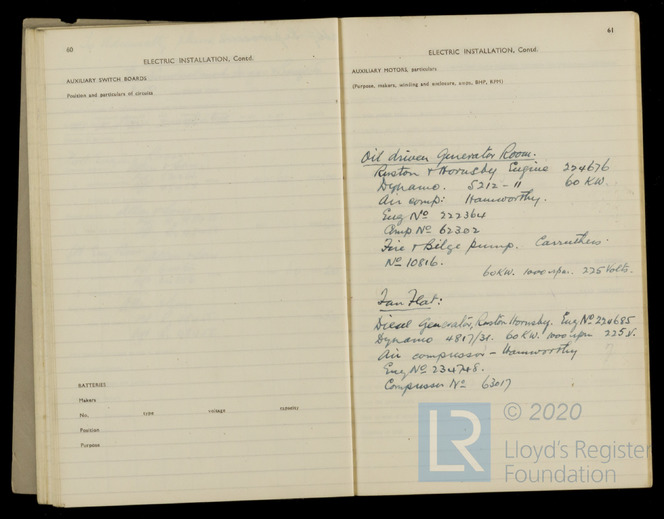 60
ELECTRIC INSTALLATION, Contd.
AUXILIARY SWITCH BOARDS
Position and particulars of circuits
BATTERIES
Makers
No. type voltage capacity
Position
Purpose
61
ELECTRIC INSTALLATION, Contd.
AUXILIARY MOTORS, particulars
(Purpose, makers, winding and enclosure, amps, BHP, RPM)
Oil driven Generator Room.
Ruston & Hornsby Engine 224676
Dynamo. 5212-11 60 KW.
Air comp: Hamworthy.
Eng No 222364
Comp No 62302
Fire & Bilge pump. Carruthers.
No 10816.
60KW. 1000 rpm. 225 Volts.
Fan Flat:
Diesel Generator, Ruston Hornsby. Eng No 224685
Dynamo 4817/31. 60 KW. 1000 rpm 225 v.
Air compressor - Hamworthy
Eng No 234748.
Compressor No 63017
LR © 2020
Lloyd's Register
Foundation